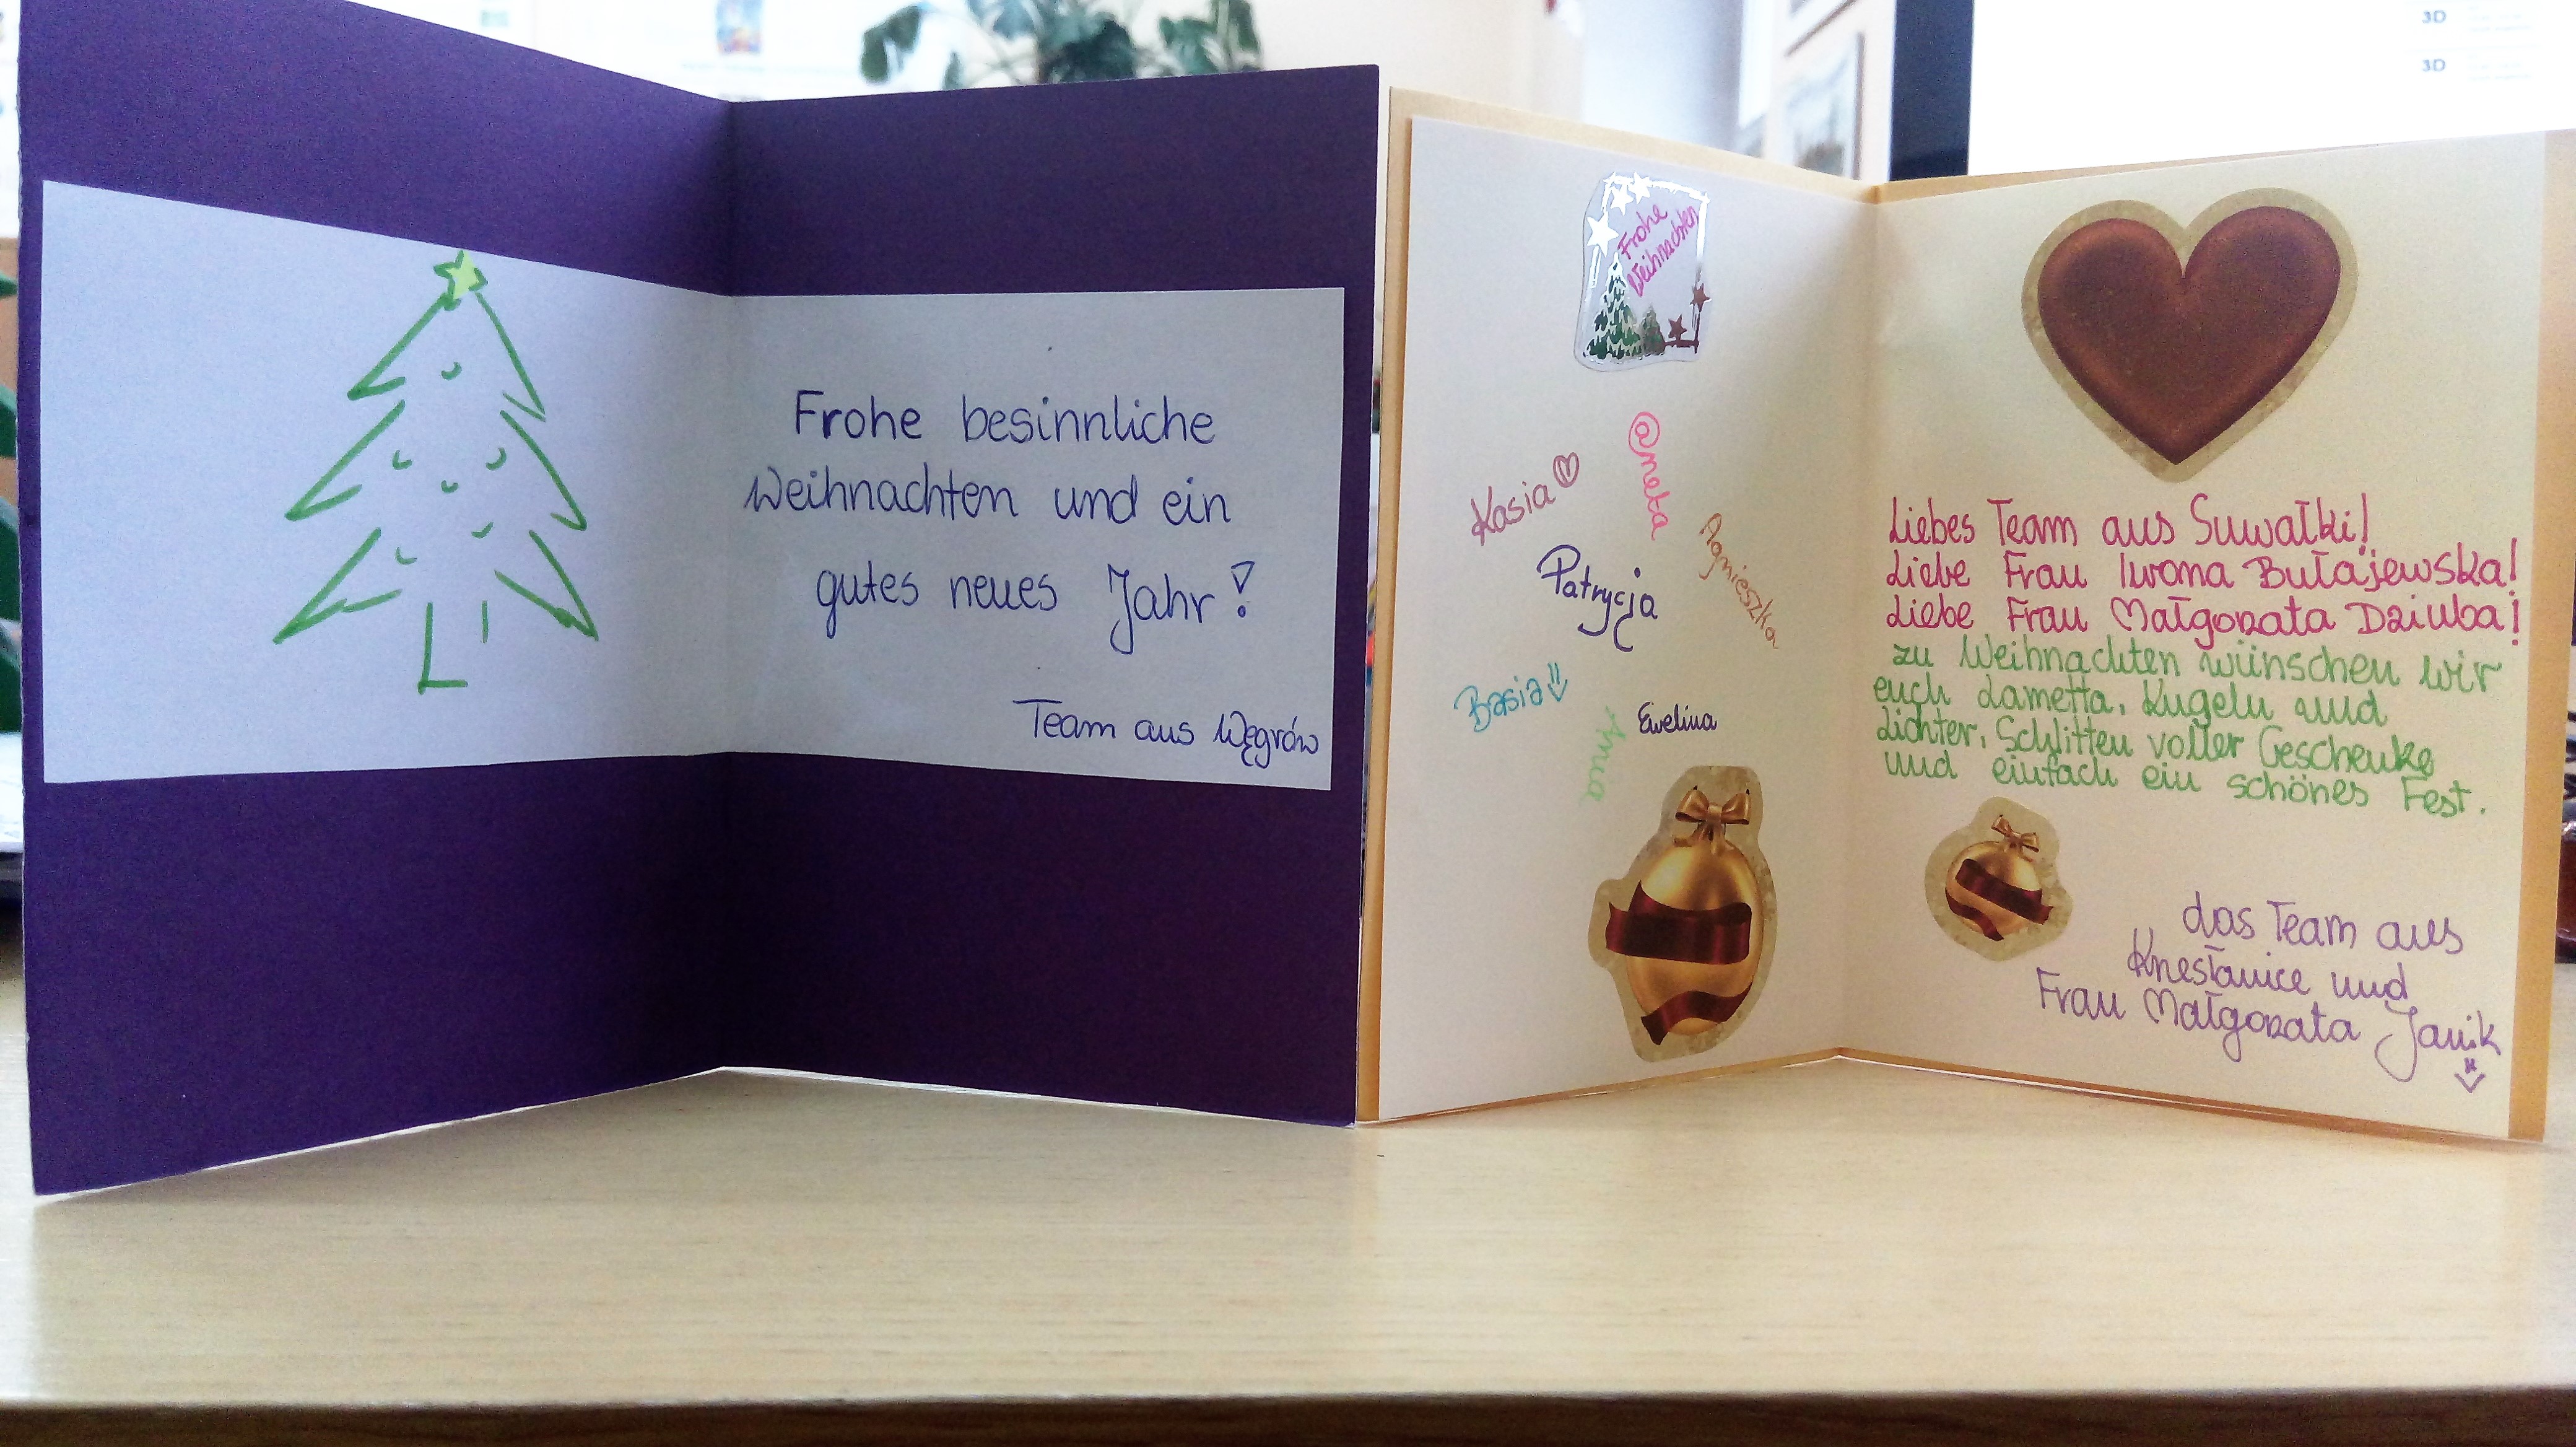 Frohe besinnliche
Weihnachten und ein
gutes neues Jahr!
Team aus Węgrów
Frohe
Weihnachten
Kasia
@neta
Agnieszka
Patrycja
Basia
Ewelina
Anna
Liebes Team aus Suwałki!
Liebe Frau Iwona Bułajewska!
Liebe Frau Małgorzata Dziuba!
zu Weihnachten wünschen wir
euch Lametta, Kugeln und
Lichter, Schlitten voller Geschenke
und einfach ein schönes Fest.
das Team aus
und
Frau Małgorzata Janik
3D
3D